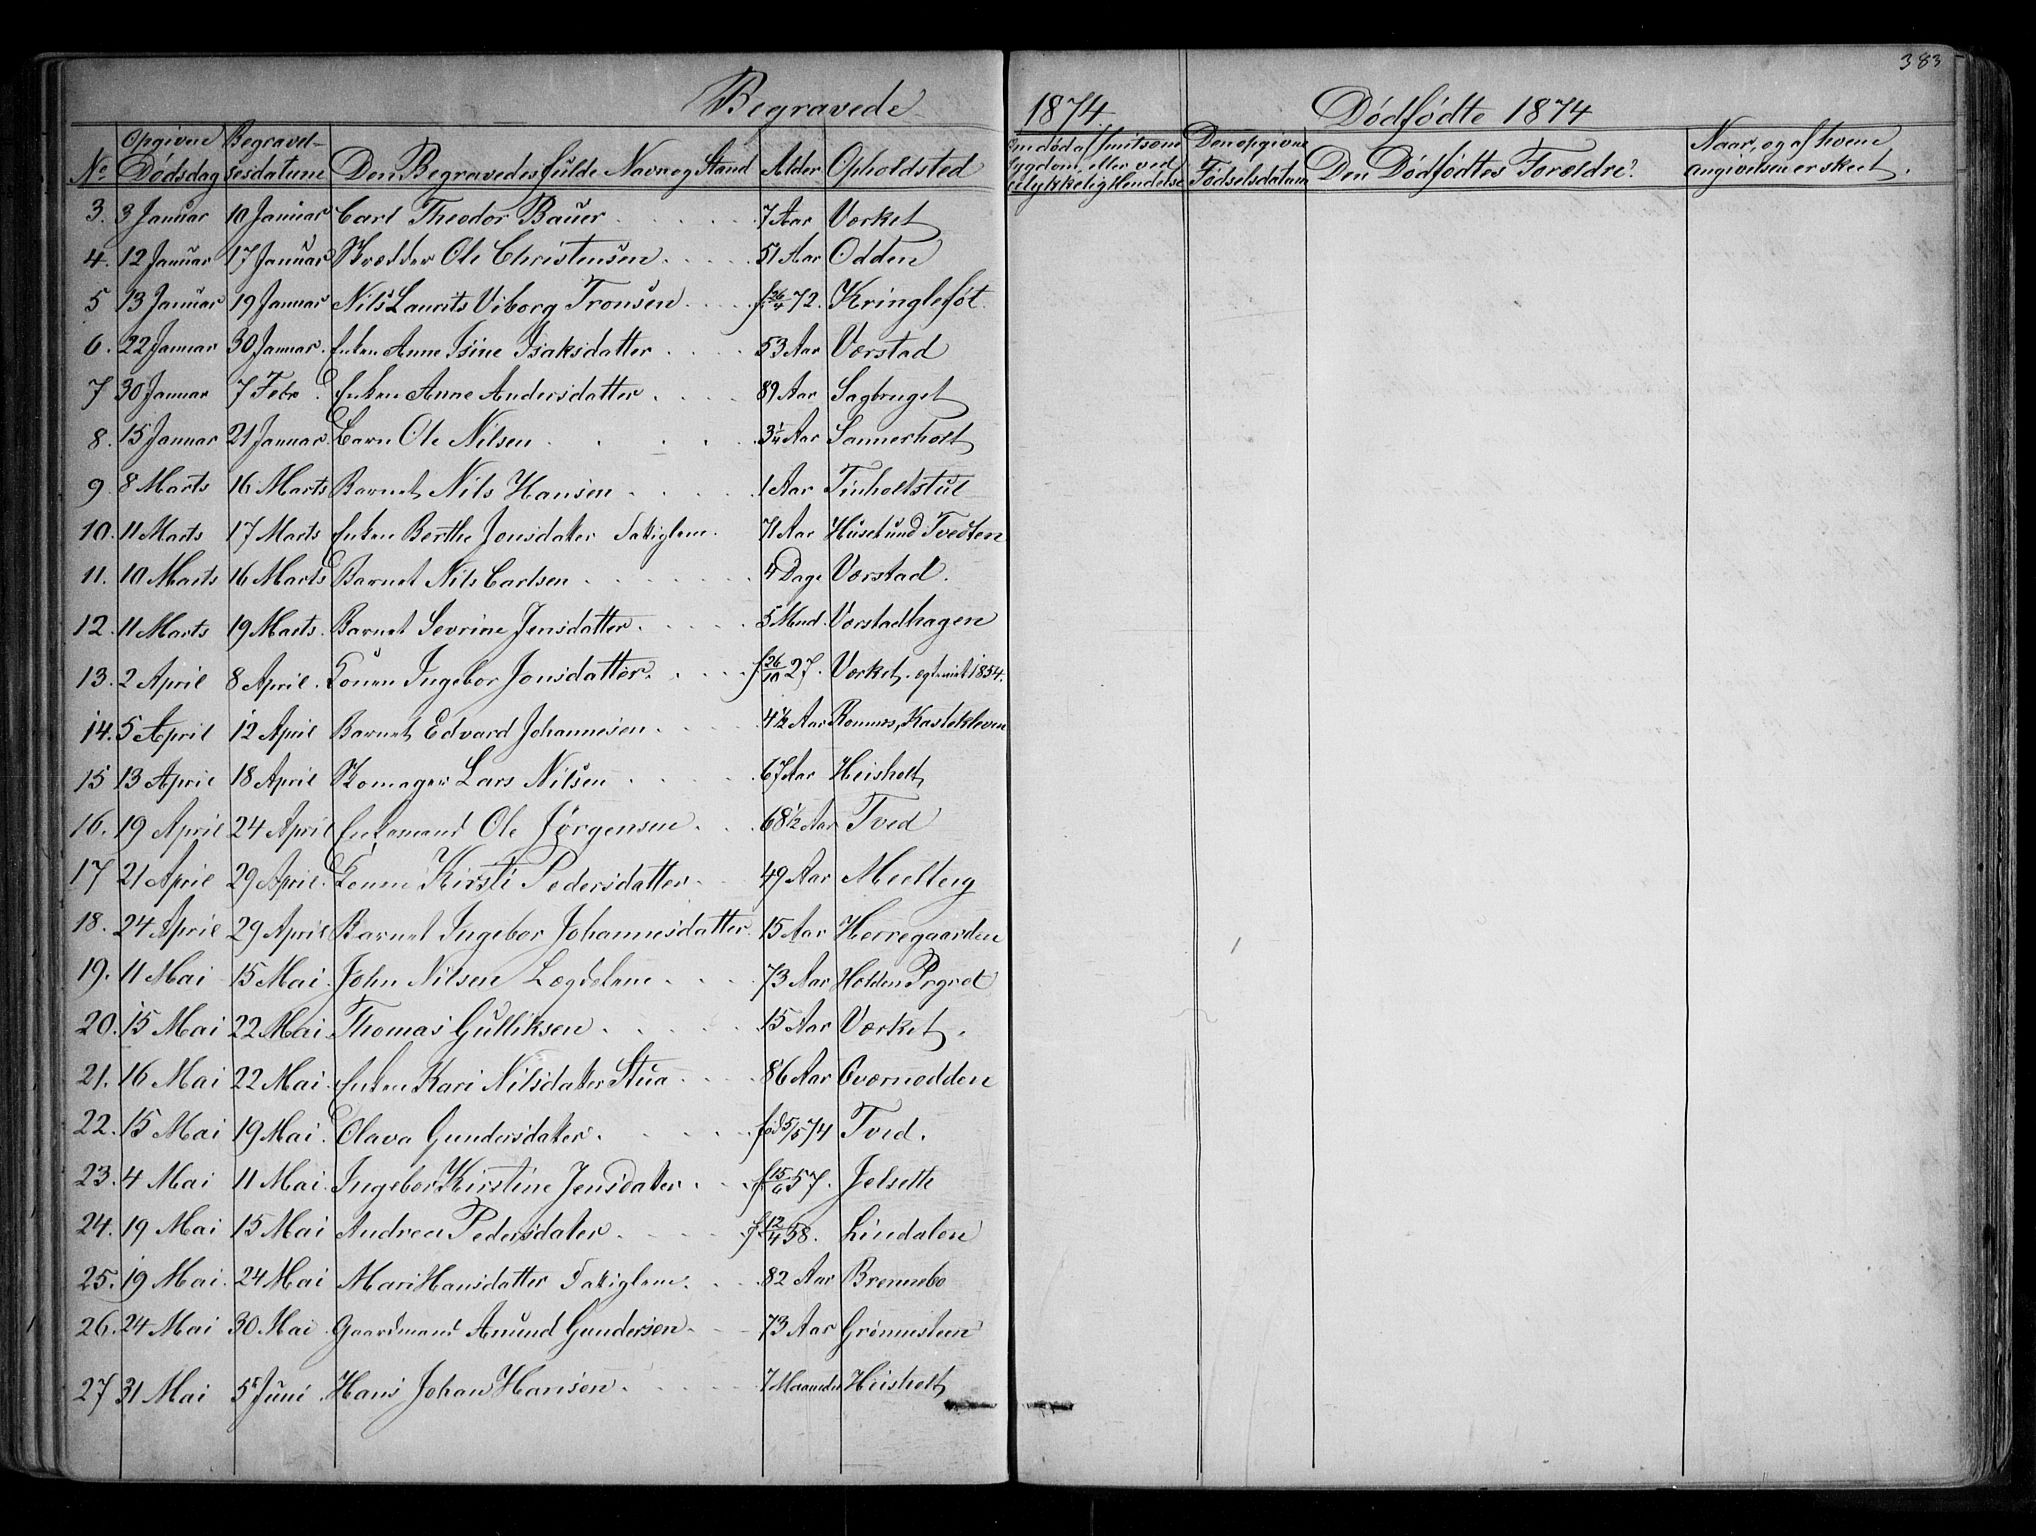 383
Begravede 1874 Dødfødte 1874
No Opgivne Dødsdag Begravelsesdatum Den Begravedes fulde Navn og Stand Alder Opholdsted Om død af smitsom Sygdom, eller ved ulykkelig Hendelse Den opgivne Fødselsdatum Den Dødfødtes Forældre? Naar, og af hvem angivelsen er skeet.
3. 3 Januar 10 Januar Carl Theodor Bauer 7 Aar Værket
4. 12 Januar 17 Januar Skrædder Ole Christensen 51 Aar Odden
5 13 Januar 19 Januar Nils Laurits Viborg Tronsen f. 26/4 72. Kringlefót
6. 22 Januar 30 Januar. Enken Anne Isine Isaksdatter 53 Aar Værstad
7 30 Januar 7 Febr. Enken Anne Andersdatter 89 Aar Sagbruget
8. 15 Januar 21 Januar Barn Ole Nilsen 3 1/4 Aar Sannerholt
9. 8 Marts 16 Marts Barnet Nils Hansen 1 Aar Tinholtstul
10. 11 Marts 17 Marts Enken Berthe Jonsdatter Fatiglem. 71 Aar Húset und Tvedten
11. 10 Marts 16 Marts Barnet Nils Carlsen 4 Dage Værstad.
12. 11 Marts 19 Marts. Barnet Sevrine Jensdatter 5 Mnd. Værstadhagen
13. 2 April 8 April. Konen Ingebor Jonsdatter. f. 26/10 27. Værket, egtemt 1854.
14. 5 April 12 April Barnet Edvard Johannesen 4 1/2 Aar Romnes, Kastekleven
15 13 April 18 April Skomager Lars Nilsen 67 Aar Heisholt
16. 19 April 24 April Enkemand Ole Jørgensen. 68 1/2 Aar Tved
17 21 April 29 April. Konen Kirsti Pedersdatter 49 Aar Melteig
18. 24 April 29 April Barnet Ingebor Johannesdatter 15 Aar Herregaarden
19. 11 Mai 15 Mai. John Nilsen Lægdslem 73 Aar Holden Prgret
20. 15 Mai 22 Mai. Thomas Gulliksen. 15 Aar Værket.
21. 16 Mai 22 Mai. Enken Kari Nilsdatter Stua 86 Aar Qværnodden
22. 15 Mai 19 Mai. Olava Gundersdatter. fød 5/5 74 Tved.
23. 4 Mai 11 Mai. Ingebor Kirstine Jensdatter f. 15/6 57. Jelsette
24. 19 Mai 15 Mai Andrea Pedersdatter f. 12/4 58. Lindalen
25. 19 Mai. 24 Mai Mari Hansdatter Fatiglem. 82 Aar Brennebo
26. 24 Mai 30 Mai. Gaardmand Amund Gundersen. 73 Aar Grønnesteen
27 31 Mai 5 Juni Hans Johan Hansen. 7 Maaneder Heisholt